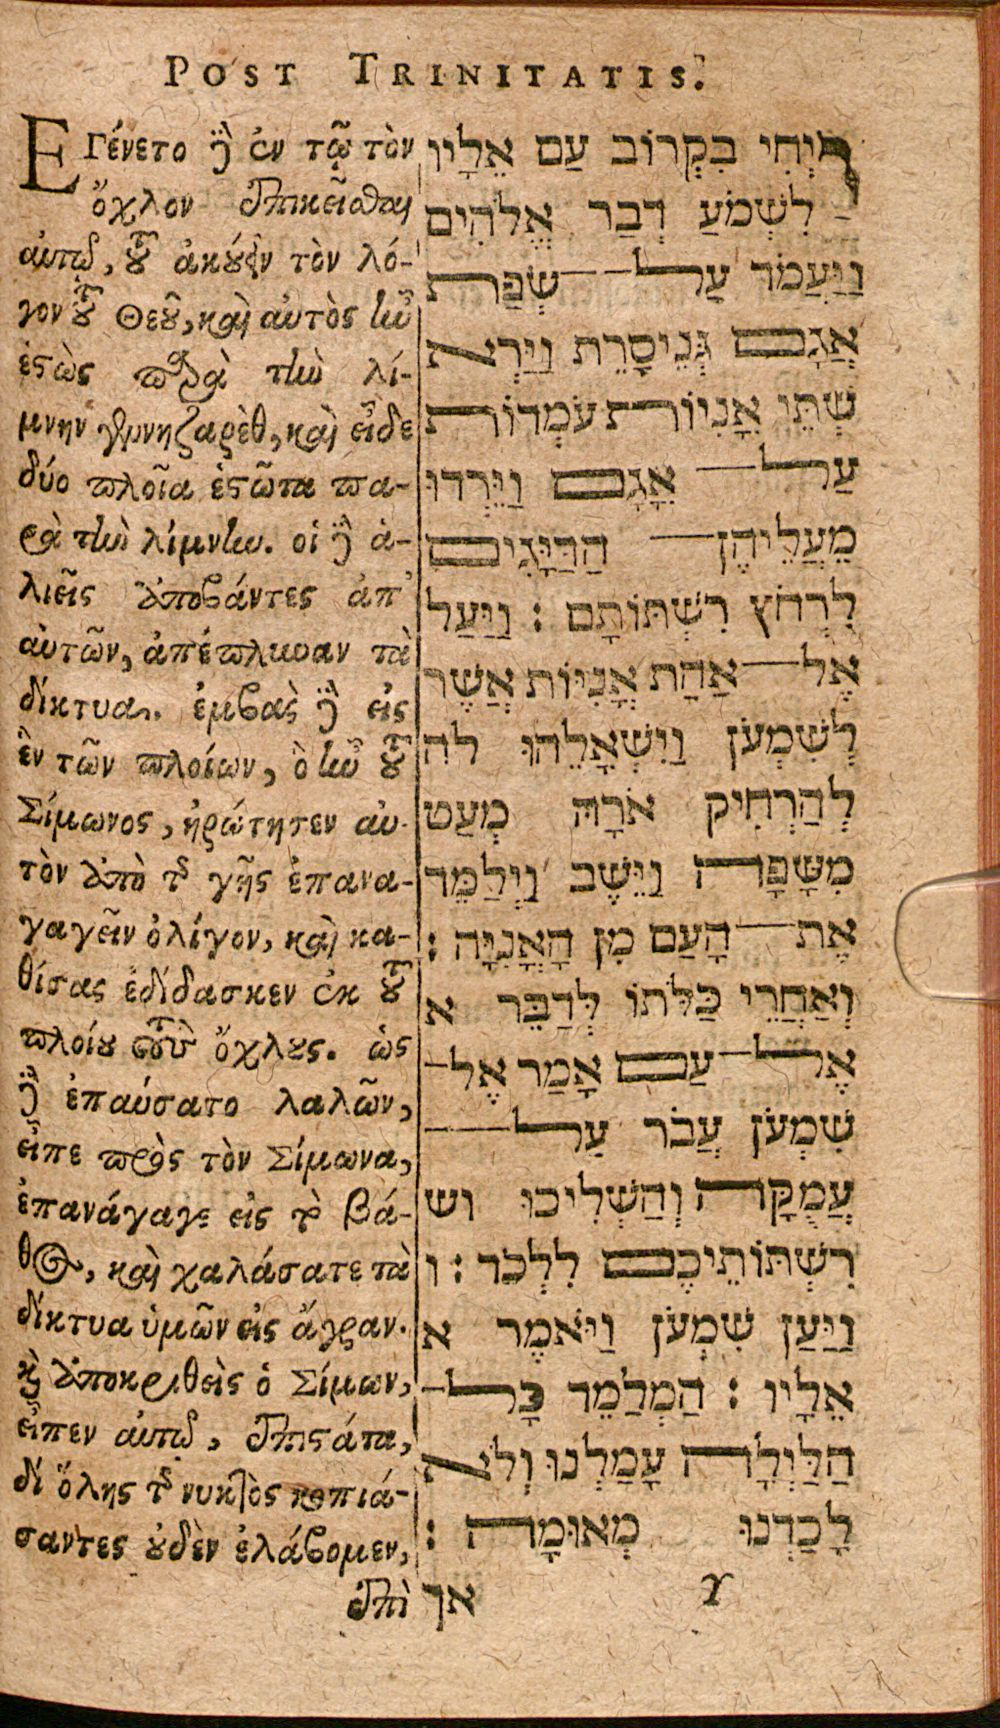 POST TRINITATIS.
ΕΓένετο δὲ ἐν τῷ τὸν
ὄχλον ἐπικεῖσθαι
αὐτῷ, τοῦ ἀκούειν τὸν λό-
γον τοῦ Θεοῦ, καὶ αὐτὸς ἦν
ἑστὼς παρὰ τὴν λί-
μνην γεννηζαρὲθ, καὶ εἶδε
δύο πλοῖα ἑστῶτα πα-
ρὰ τὴν λίμνην. οἱ δὲ ἁ-
λιεῖς ἀποβάντες ἀπ᾽
αὐτῶν, ἀπέπλυναν τὰ
δίκτυα. ἐμβὰς δὲ εἰς
ἓν τῶν πλοίων, ὃ ἦν τοῦ
Σίμωνος, ἠρώτησεν αὐ-
τὸν ἀπὸ τῆς γῆς ἐπανα-
γαγεῖν ὀλίγον, καὶ κα-
θίσας ἐδίδασκεν ἐκ τοῦ
πλοίου τοὺς ὄχλους. ὡς
δὲ ἐπαύσατο λαλῶν,
εἶπε πρὸς τὸν Σίμωνα,
ἐπανάγαγε εἰς τὸ βά-
θος, καὶ χαλάσατε τὰ
δίκτυα ὑμῶν εἰς ἄγραν.
καὶ ἀποκριθεὶς ὁ Σίμων,
εἶπεν αὐτῷ, ἐπιστάτα,
δί ὅλης τῆς νυκτὸς κοπιά-
σαντες οὐδὲν ἐλάβομεν,
ἐπὶ
וַיְהִי בִּקְרוֹב עַם אֵלָיו
לִשְׁמֹעַ דְּבַר אֱלֹהִים
וַיַּעֲמֹד עַל שְׂפַת
אֲגַם גְּנֵיסָרֵת וַיַּרְא
שְׁתֵּי אֳנִיּוֹת עֹמְדוֹת
עַל אֲגָם וַיֵּרְדוּ
מֵעֲלֵיהֶן הַדַּיָּגִים
לִרְחֹץ רִשְׁתּוֹתָם׃ וַיַּעַל
אֶל אַחַת אֳנִיּוֹת אֲשֶׁר
לְשִׁמְעֹן וַיִּשְׁאָלֵהוּ לה
לְהַרְחִיק אֹרָהּ מְעַט
מִשָּׂפָה וַיֵּשֶׁב וַיְלַמֵּד
אֶת הָעָם מִן הָאֳנִיָּה׃
וְאַחֲרֵי כַּלֹּתוֹ לְדַבֵּר א
אֶל עַם אָמַר אֶל-
שִׁמְעֹן עֲבֹר עַל
עֲמֻקָּה וְהַשְׁלִיכוּ וש
רִשְׁתּוֹתֵיכֶם לִלְכֹּד׃ ו
וַיַּעַן שִׁמְעֹן וַיֹּאמֶר א
אֵלָיו׃ הַמְלַמֵּד כָּל-
הַלַּיְלָה עָמַלְנוּ וְלֹא
לָכַדְנוּ מְאוּמָה׃
אך
Y